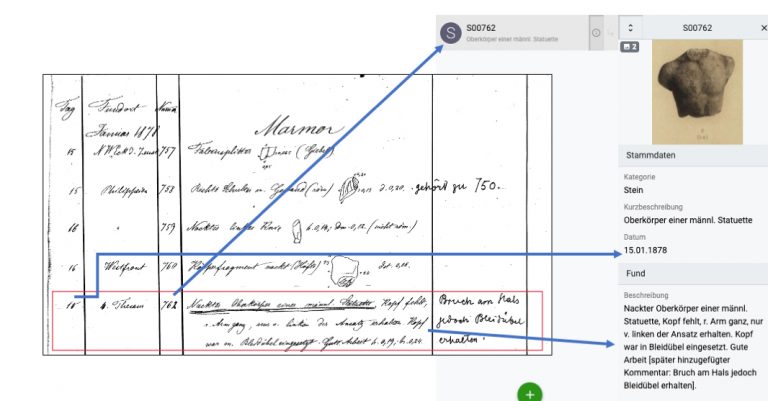 S S00762
Oberkörper einer männl. Statuette
S00762
2
Tag Fundort
Januar 1878
Marmor
15 757 Falzensplitter (Giebel)
15 Philippeion 758 d. 0,20. gehört zu 750.
18 " 759 Nacktes linkes Knie h. 0,14; dm 0,12. (nicht röm)
16 Westfront 760 nackt (Hüfte) dst. 0,16.
762 Nackter Oberkörper einer männl. Statuette, Kopf fehlt, Bruch am Hals
r. Arm ganz, nur v. linken der Ansatz erhalten Kopf jedoch Bleidübel
war in Bleidübel eingesetzt. Gute Arbeit h. 0,19; b. 0,20. erhalten.
Stammdaten
Kategorie
Stein
Kurzbeschreibung
Oberkörper einer männl. Statuette
Datum
15.01.1878
Fund
Beschreibung
Nackter Oberkörper einer männl.
Statuette, Kopf fehlt, r. Arm ganz, nur
v. linken der Ansatz erhalten. Kopf
war in Bleidübel eingesetzt. Gute
Arbeit [später hinzugefügter
Kommentar: Bruch am Hals jedoch
Bleidübel erhalten].